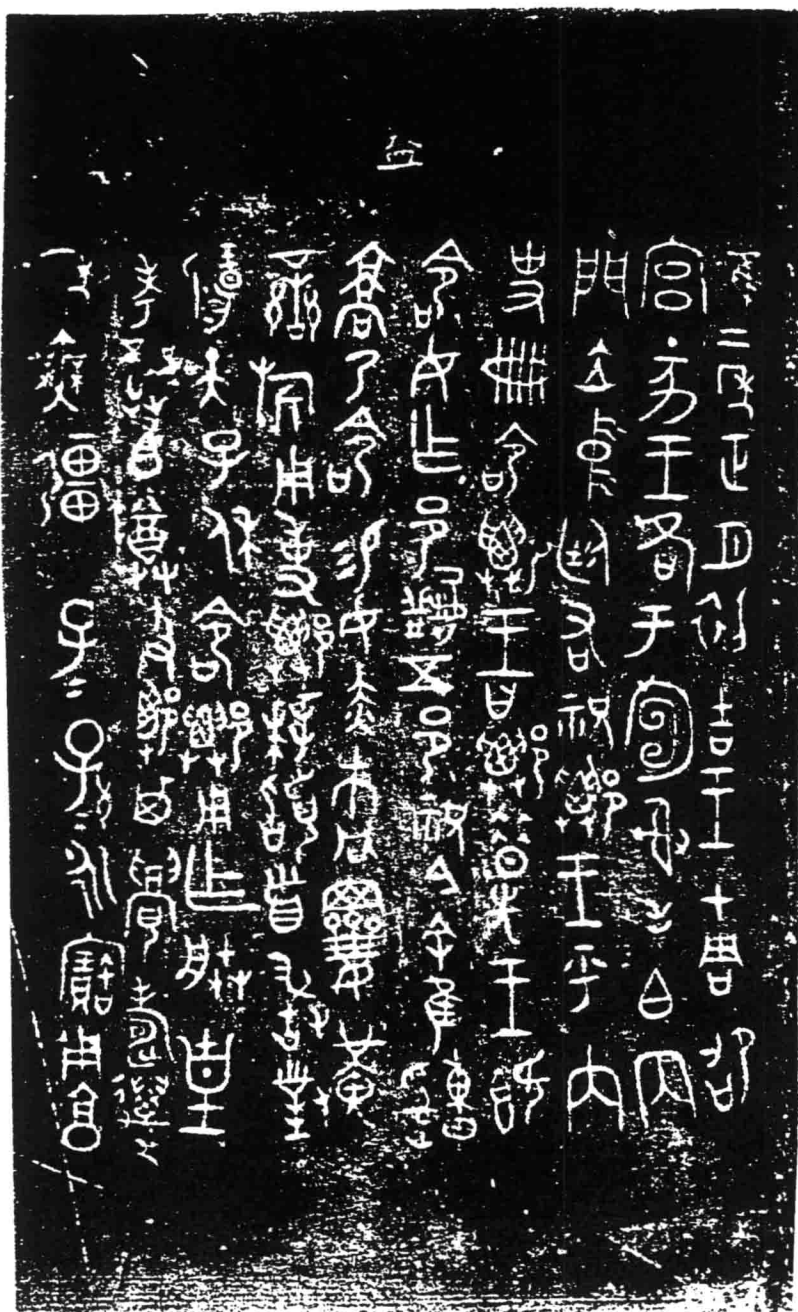 隹二年正月初吉王才周邵
宮丁亥王各于宣射毛白内
門立中廷右祝王乎内
史册命王曰昔先王既
命女乍邑五邑祝今余隹
乃命易女赤巿冋黃䜌
旂用事拜稽首敢對
揚天子休命用乍朕皇
考龏白尊簋其眉壽萬
年無疆子=孫=永寶用享